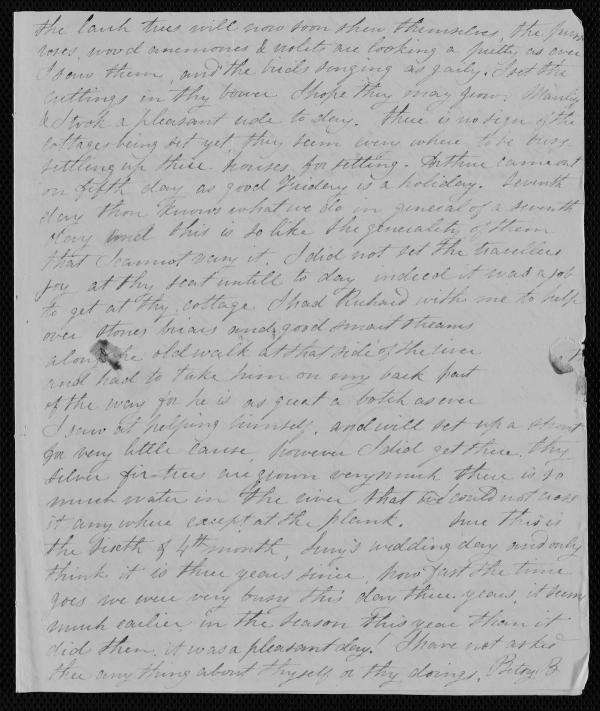 the larch trees will now soon shew themselves, the prim
roses, wood anemones & violets are looking a pretty as ever
I saw them, and the birds singing as gaily. I set the
cuttings in thy bower I hope they may grow.
& I took a pleasant ride to day. there is no sign of the
cottages being set yet, they seem every where to be busy
settling up their houses for setting. Arthur came out
on fifth day as good Friday is a holiday. Seventh
day thou knows what we do in general of a seventh
day and this is so like the generality of them
that I cannot vary it. I did not set the travellers
joy at thy seat untill to day indeed it was a job
to get at thy cottage I had Richard with me to help
over stones briars and good smart streams
along the old walk at that side of the river
and had to take him on my back part
of the way for he is as great a botch as ever
I saw at helping himself, and will set up a shout
for very little cause, however I did get there. thy
silver fir-trees are grown very much there is so
much water in the river that we could not cross
it any where except at the plank. Sure this is
the sixth of 4th month, wedding day and only
think it is three years since, how fast the time
goes we were very busy this day three years, it seems
much earlier in the season this year than it
did then, it was a pleasant day! I have not asked
thee any thing about thyself or thy doings. Betsy B